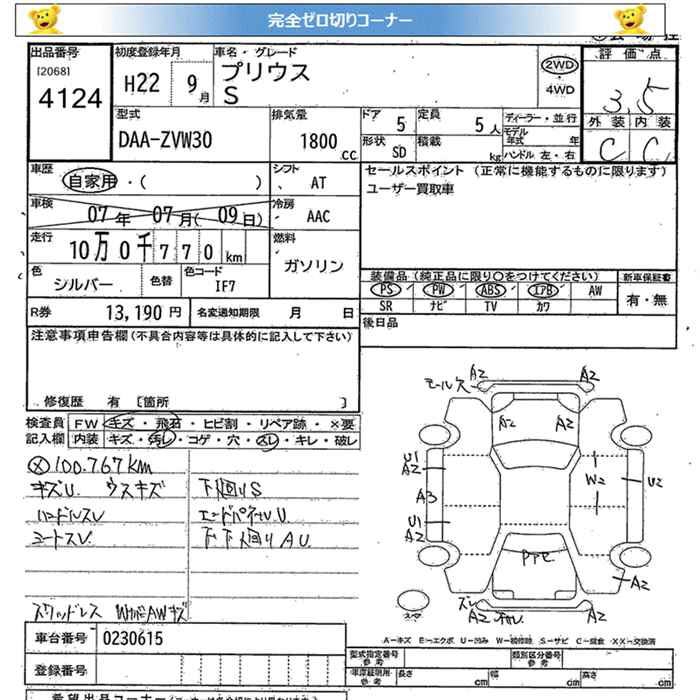 完全ゼロ切りコーナー
出品番号
[2068]
4124
初度登録年月
H22 9月
車名・グレード
プリウス
S
2WD
・
4WD
評価点
3.5
外装 内装
C C
型式
DAA-ZVW30
排気量
1800 cc
ドア
5
定員
5人
形状
SD
積載
kg
ディーラー・並行
モデル
年式 年
ハンドル 左・右
車歴
自家用・( )
シフト
AT
車検
07年 07月( 09日)
冷房
AAC
走行
10万0千770km
燃料
ガソリン
色
シルバー
色替
色コード
1F7
R券
13,190円
名変通知期限 月 日
セールスポイント (正常に機能するものに限ります)
ユーザー買取車
装備品(純正品に限り○をつけてください)
PS PW ABS エアB AW
SR ナビ TV カワ
新車保証書
有・無
後日品
注意事項申告欄(不具合内容等は具体的に記入して下さい)
修復歴 有 [箇所 ]
検査員
記入欄
FW キズ・飛石・ヒビ割・リペア跡・×要
内装 キズ・汚レ・コゲ・穴・スレ・キレ・破レ
100.767km
キズU ウスキズ
ハンドルスレ
シートスレ
下廻りS
エンドパネルU
下下廻りAU
モール欠
A2
A2
A2
A2
U1
A2
A3
U1
A2
W2
U2
PPC
A2
A2
A2
スペア
A-キズ E-エクボ U-凹み W-補修跡 S-サビ C-腐食 XX-交換済
車台番号
0230615
登録番号
型式指定番号
参考
類別区分番号
参考
車庫証明用
参考
長さ
cm
幅
cm
高さ
cm
希望出品コーナー